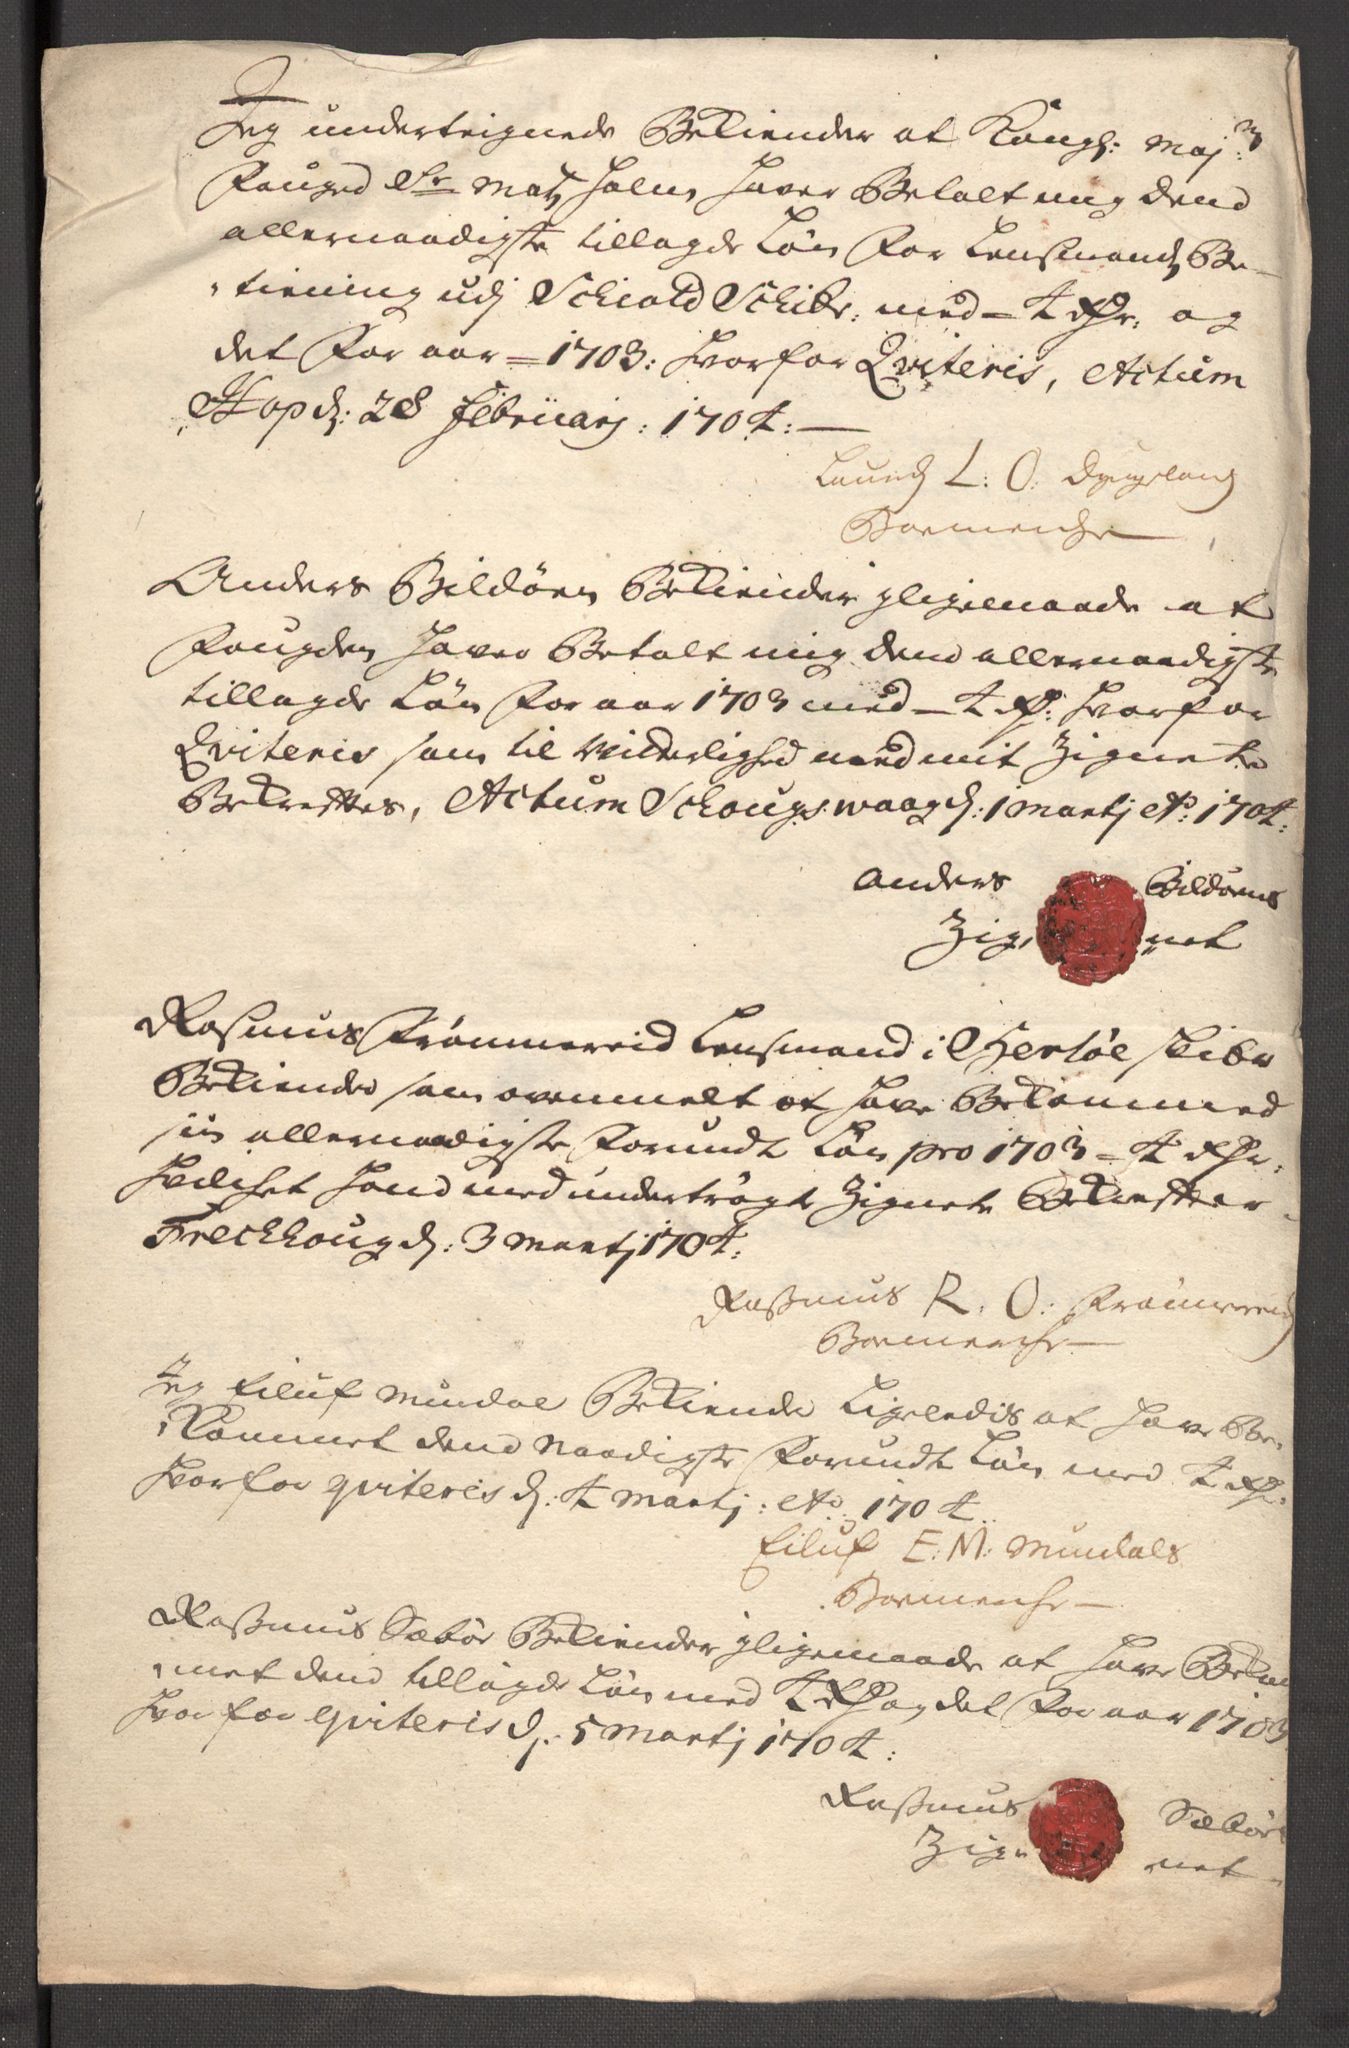 Jeg underteignede Bekiender at Kongl: Maj:ts
Fouged Sr Matz Holm hafver Betalt mig dend
allernaadigste tillagde Lön for Lensmandz Be-
tiening udj Schiold Schibr: med - 4 rdr. og
det for aar - 1703: hvorfor Qviteris, Actum
Hop d: 28 Februarj: 1704:
Lauridz L: O:
Boemerche
Anders Bildöen Bekiender jligemaade at
Fougden hafver Betalt mig dend allernaadigste
tillagde Lön for aar 1703 med - 4 rd: hvorfor
Qviteris som til Vitterlighed med mit Zignete
Bekreftes, Actum Schougs waag d: 1 Martj Ao: 1704:
Anders Bildöens
Zig- net
Rasmus Frömmereid Lensmand i Herlöe skibr
Bekiender som ovenmelt at hafve Bekommed
sin allernaadigste forundt Lön pro 1703 - 4 rdr.
hvilchet hand med undertrögt Zignete Bekrefter
Frechhoug d: 3 Martj 1704:
Rasmus R. O: Frömereidz
Boemerche
Jeg Eiluf Mundal Bekiender Ligeledis at hafve Be-
kommet dend Naadigste forundt Lön med 4 rd:
hvorfor qviteris d: 4 Martj: Ao: 1704
Eiluf E: M: Mundals
Boemerche
Rasmus Sæbör Bekiender jligemaade at hafve Bekom-
met dend tillagde Lön med 4 rd og det for aar 1703
hvorfor qviteris d: 5 Martj 1704:
Rasmus Sæbörs
Zig- net